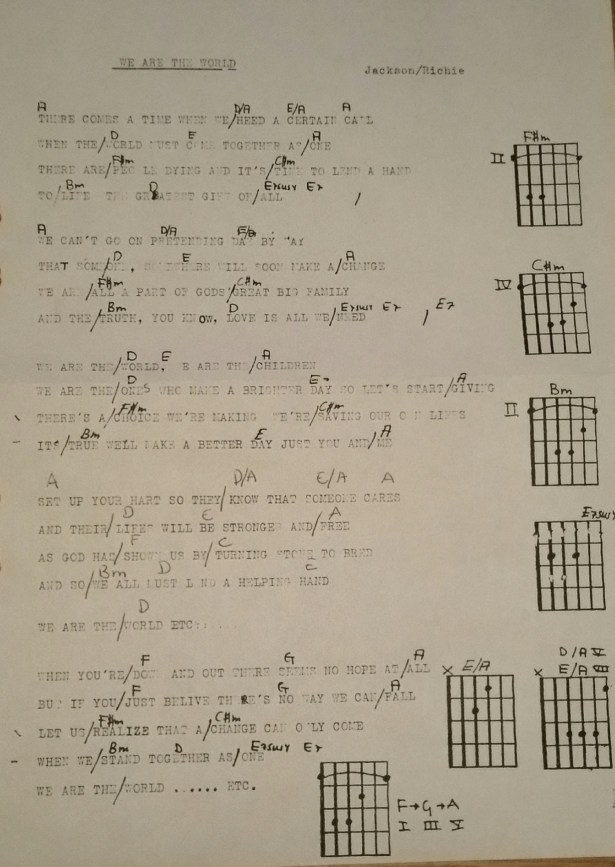 WE ARE THE WORLD
Jackson/Richie
A D/A E/A A
THERE COMES A TIME WHEN WE/HEED A CERTAIN CALL
D E A
WHEN THE/WORLD MUST COME TOGETHER AS/ONE
F#m C#m
THERE ARE/PEOPLE DYING AND IT'S/TIME TO LEND A HAND
Bm D E7SUS4 E7
TO/LIFE THE GREATEST GIFT OF/ALL /
A D/A E/A
WE CAN'T GO ON PRETENDING DAY BY DAY
D E A
THAT SOMEONE, SOMEWHERE WILL SOON MAKE A/CHANGE
F#m C#m
WE ARE/ALL A PART OF GODS/GREAT BIG FAMILY
Bm D E7SUS4 E7 E7
AND THE/TRUTH, YOU KNOW, LOVE IS ALL WE/NEED /
D E A
WE ARE THE/WORLD, WE ARE THE/CHILDREN
D E7 A
WE ARE THE/ONES WHO MAKE A BRIGHTER DAY SO LET'S START/GIVING
F#m C#m
THERE'S A/CHOICE WE'RE MAKING WE'RE/SAVING OUR OWN LIFES
Bm E A
ITS/TRUE WELL MAKE A BETTER DAY JUST YOU AND/ME
A D/A E/A A
SET UP YOUR HART SO THEY/KNOW THAT SOMEONE CARES
D E A
AND THEIR/LIFES WILL BE STRONGER AND/FREE
F C
AS GOD HAS/SHOWN US BY/TURNING STONE TO BRED
Bm D
AND SO/WE ALL MUST LEND A HELPING HAND
D
WE ARE THE/WORLD ETC.....
F G A
WHEN YOU'RE/DOWN AND OUT THERE SEEMS NO HOPE AT/ALL
F G A
BUT IF YOU/JUST BELIVE THERE'S NO WAY WE CAN/FALL
F#m C#m
LET US/REALIZE THAT A/CHANGE CAN ONLY COME
Bm D E7SUS4 E7
WHEN WE/STAND TOGETHER AS/ONE
WE ARE THE/WORLD ...... ETC.
F#m
II
C#m
IV
Bm
II
E7SUS4
X E/A
D/A V
X E/A VII
F→G→A
I III V